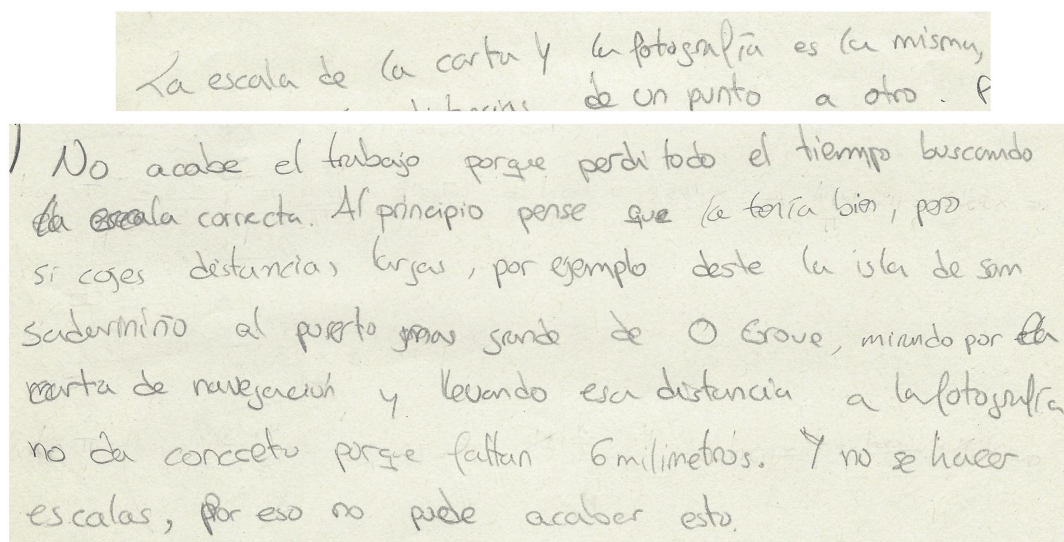 La escala de la carta y la fotografía es la misma,
de un punto a otro.
No acabe el trabajo porque perdí todo el tiempo buscando
la escala correcta. Al principio pense que la tenía bien, pero
si cojes distancias largas, por ejemplo deste la isla de san
sadurniño al puerto mas grande de O Grove, mirando por la
carta de navegación y llevando esa distancia a la fotografía
no da concreto porque faltan 6 milimetros. Y no se hacer
escalas, por eso no puede acabar esto.